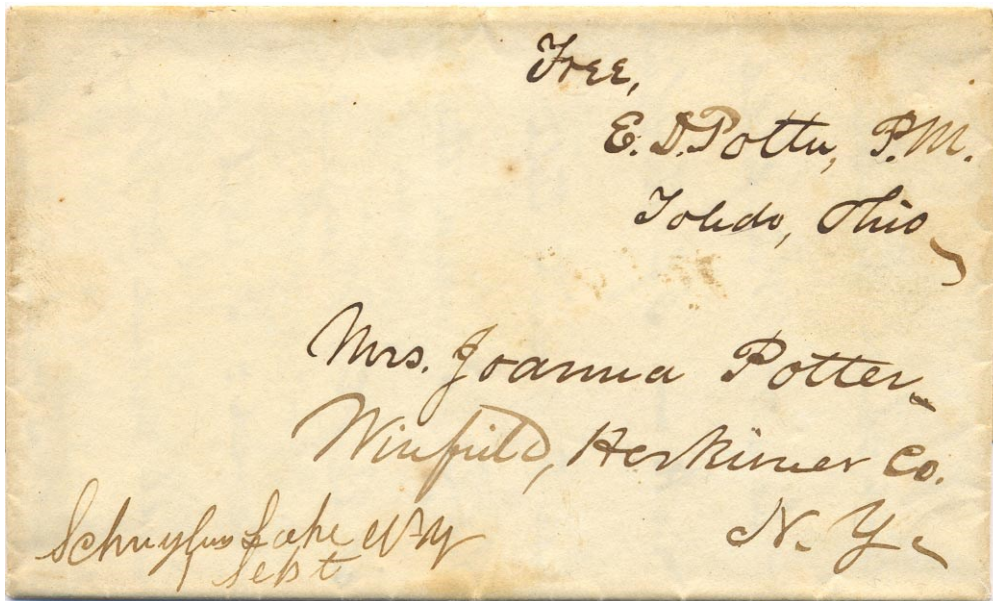 Free,
E. D. Potter, P.M.
Toledo, Ohio
Mrs. Joanna Potter
Winfield, Herkimer Co.
N. Y.
Schuylers Lake N-Y
Sept